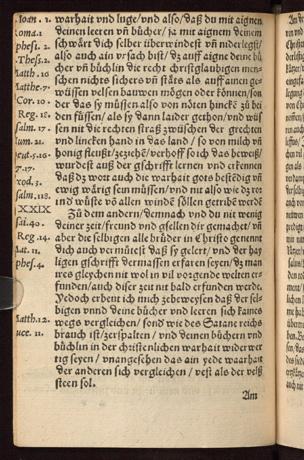 Joan. 1.
Roma. 1.
phesi. 2.
1. Thess. 2.
Matth. 10
Matthe. 7.
Cor. 10.
Reg. 18.
salm. 17.
um. 21.
7. 17.
xod. 3.
salm. 118.
XXIX
sai. 40.
Reg. 14.
sai. 11.
phes. 4.
Matth. 12.
uce. 11.
warhait vnd luge/vnd also/daß du mit aignen
deinen leeren vn̄ bücher/ja mit aignem deinem
schwärt dich selber überwindest vn̄ niderlegst/
also auch ain vrsach bist/dz auff aigne deine bü
cher vn̄ büchlin die recht christglaubigen men-
schen nichts sichers vn̄ stäts als auff ainen ge-
wüssen velsen bauwen mögen oder können/son
der das sy müssen also von nöten hincke zů bei
den füssen/als sy dann laider gethon/vnd wüs
sen nit die rechten straß zwüschen der grechten
vnd lincken hand in das land/so von milch vn̄
honig fleüßt/zeziehē/verhoff ich das beweiß/
wurdest auß der gschrifft lernen vnd erkennen
daß dz wort auch die warhait gots bestēdig vn̄
ewig wärig sein müssen/vnd nit also wie dz ror
ind wüste vō allen winde söllen getribē werdē
Zů dem andern/demnach vnd du nit wenig
deiner zeit/freund vnd gsellen dir gemachet/vn̄
aber die selbigen alle brüder in Christo genennt
dich auch vermütest daß sy gelert/vnd der hay
ligen gschrifft dermassen erfaren seyen/dz man
ires gleychen nit wol in vil vorgende welten er-
funden/auch diser zeit nit bald erfunden werde.
Yedoch erbeut ich mich zebeweysen daß der sel-
bigen vnnd deine bücher vnd leeren sich kaines
wegs vergleichen/sond̄ wie des Satans reichs
brauch ist/zerspalten/vnd deinen büchern vnd
büchlin in der christenlichen warhait widerwer
tig seyen/vnangesehen das ain yede warhait
der anderen sich vergleichen/vest als der velß
steen sol.
Am